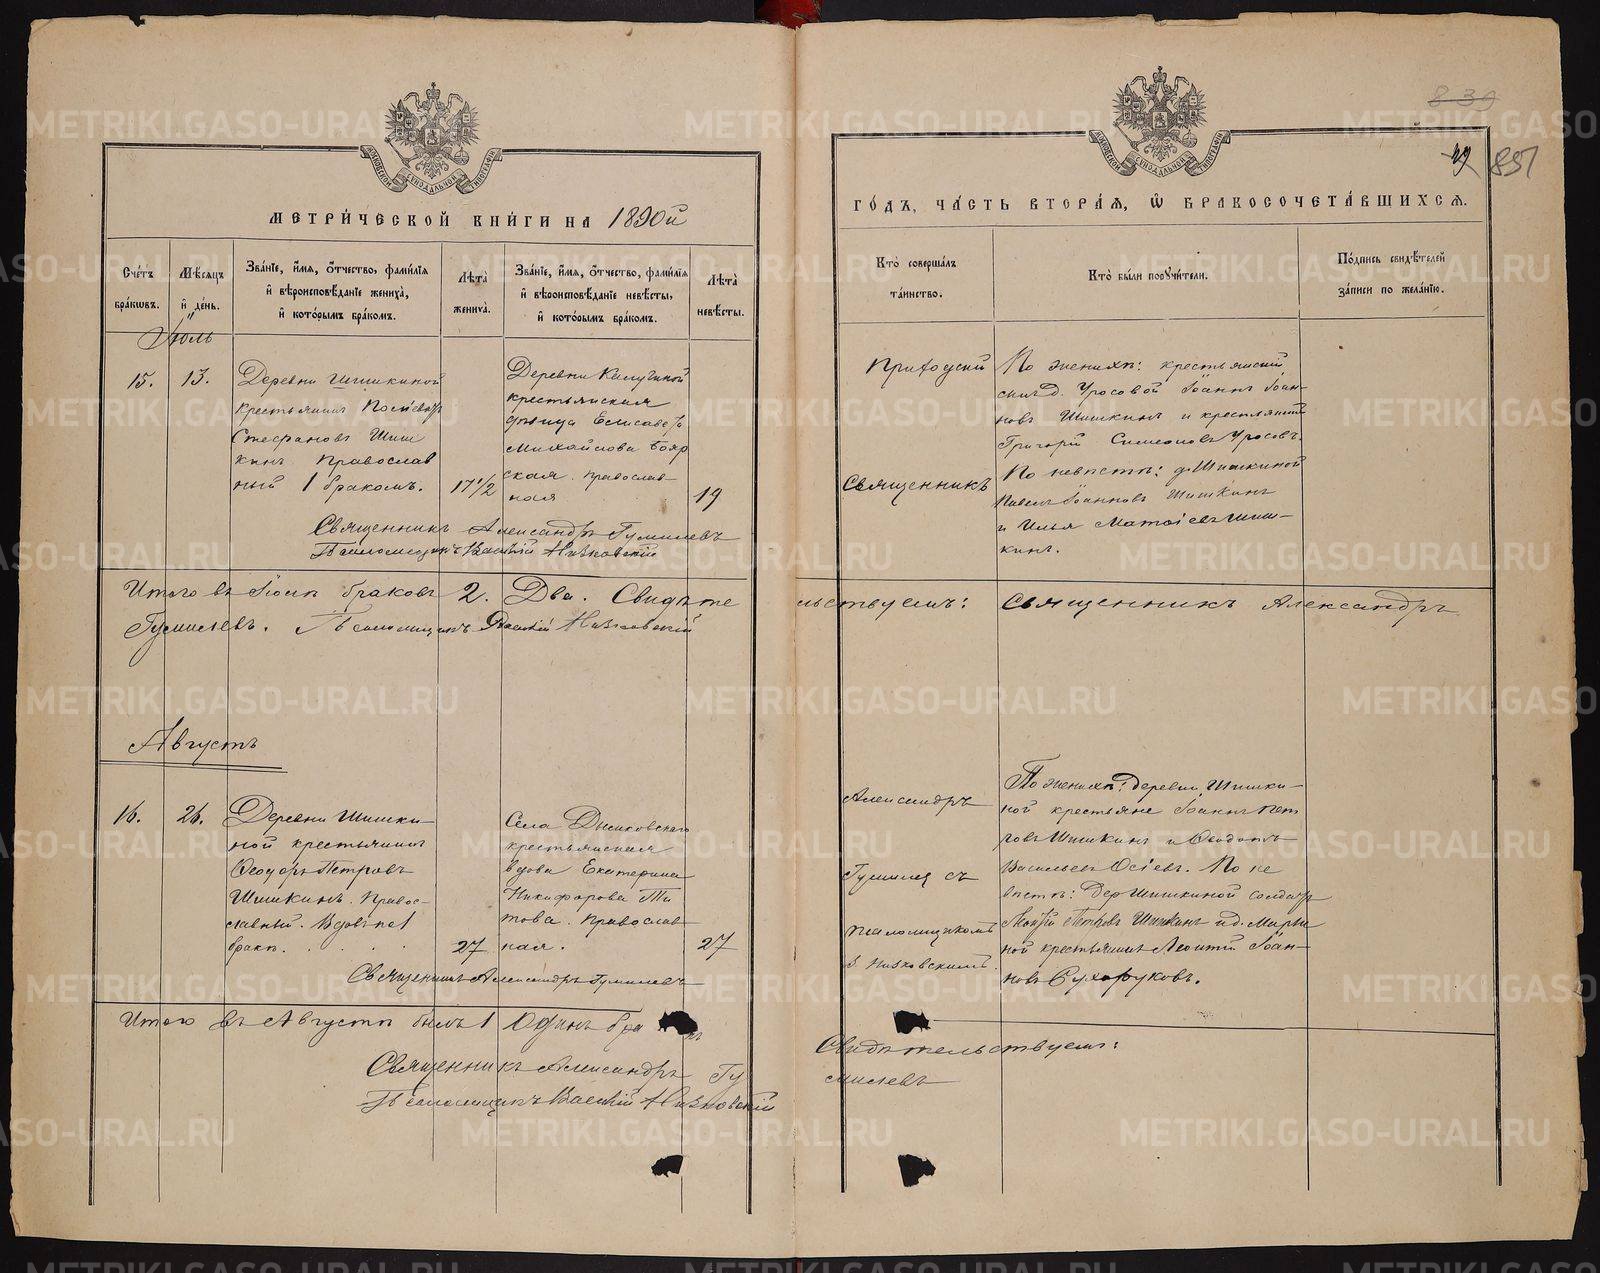 МЕТРИ́ЧЕСКОЙ КНИ́ГИ НА 1890й
ГО́ДЪ, ЧА́СТЬ ВТОРА́Я, Ѽ БРАКОСОЧЕТА́ВШИХСЯ.
8 39
49
851
Сче́тъ бра́ковъ.
Мѣ́сяцъ и҆ де́нь.
Зва́нїе, и҆́мя, ѻ҆́тчество, фами́лїя
и҆ вѣроисповѣ́данїе жениха̀,
и҆ кото́рымъ бра́комъ.
Лѣ́та жениха̀.
Зва́нїе, и҆́мя, ѻ҆́тчество, фами́лїя
и҆ вѣроисповѣ́данїе невѣ́сты,
и҆ кото́рымъ бра́комъ.
Лѣ́та невѣ́сты.
Кто̀ соверша́лъ та́инство.
Кто̀ бы́ли порꙋчи́тели.
По́дпись свидѣ́телей за́писи по жела́нїю.
Іюль
15.
13.
Деревни Шишкиной
крестьянинъ
Стефановъ Шиш
кинъ Православ
ный 1 бракомъ.
17½
Деревни Калугиной
крестьянская
дѣвица Елисавета
Михайлова Бояр
ская. православ-
ная
19
Приходскій
Священникъ
По женихѣ: крестьянскій
сынъ д. Уросовой Іоаннъ Іоан-
новъ Шишкинъ и крестьянинъ
Григорій Симеоновъ Уросовъ.
По невѣстѣ: д. Шишкиной
Павелъ Іоанновъ Шишкинъ
и Илья Матѳіевъ Шиш-
кинъ.
Священникъ Александръ Гумилевъ
Псаломщикъ Василій Низковскій
Итого въ Іюлѣ браковъ 2. Два. Свидѣте
льствуемъ: Священникъ Александръ
Гумилевъ. Псаломщикъ Василій Низковскій
Августъ
16.
26.
Деревни Шишки-
ной крестьянинъ
Ѳеодоръ Петровъ
Шишкинъ. Правос-
лавный. Вдовъ по 1
бракѣ.
27
Села
крестьянская
вдова Екатерина
Никифорова Ти
това. Православ
ная.
27
Александръ
Гумилевъ съ
псаломщикомъ
В. Низковскимъ.
По женихѣ: деревни Шишки-
ной крестьяне Іоаннъ Пет
ровъ Шишкинъ и Ѳеодотъ
Васильевъ Осіевъ. По не
вѣстѣ: Дер Шишкиной солдатъ
Петровъ Шишкинъ и д.
ной крестьянинъ Леонтій Іоан-
новъ Сухоруковъ.
Священникъ Александръ Гумилевъ
Итого въ Августѣ былъ 1 Одинъ бра къ
Свидѣтельствуемъ:
Священникъ Александръ Гу
милевъ
Псаломщикъ Василій Низковскій
METRIKI.GASO-URAL.RU